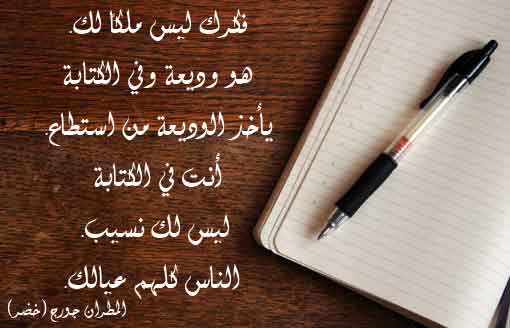 فكرك ليس ملكا لك.
هو وديعة وفي الكتابة
يأخذ الوديعة من استطاع.
أنت في الكتابة
ليس لك نسيب.
الناس كلهم عيالك.
المطران جورج (خضر)